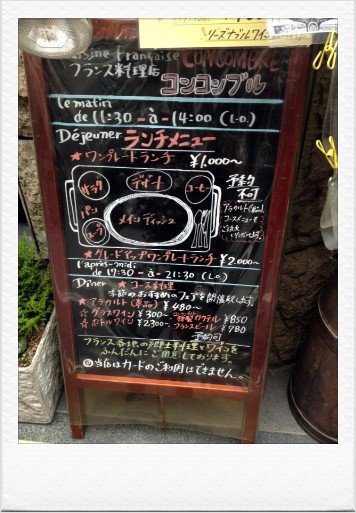 リーズナブルワイン
Cuisine Française CONCOMBRE
フランス料理店 コンコンブル
le matin
de 11:30 - à - 14:00 (l.o.)
Déjeuner ランチメニュー
★ ワンプレートランチ ¥1.000~
サラダ デザート コーヒー
パン メインディッシュ
スープ
予約
不可
アラカルト(単品)
コースメニューも
ご注文
★グレードアップワンプレートランチ ¥2.000~
l'après-midi
de 17:30 - à - 21:30 (l.o.)
Dîner ★ コース料理
季節のおすすめのフェアを開催致します。
★ アラカルト(単品) ¥480~
☆ グラスワイン ¥300~ 特製カクテル ¥850
☆ ボトルワイン ¥2.300~ フランスビール ¥780
予約可
フランス各地の郷土料理とワインを
ふんだんにご用意しております。
◎当店はカードのご利用はできません。